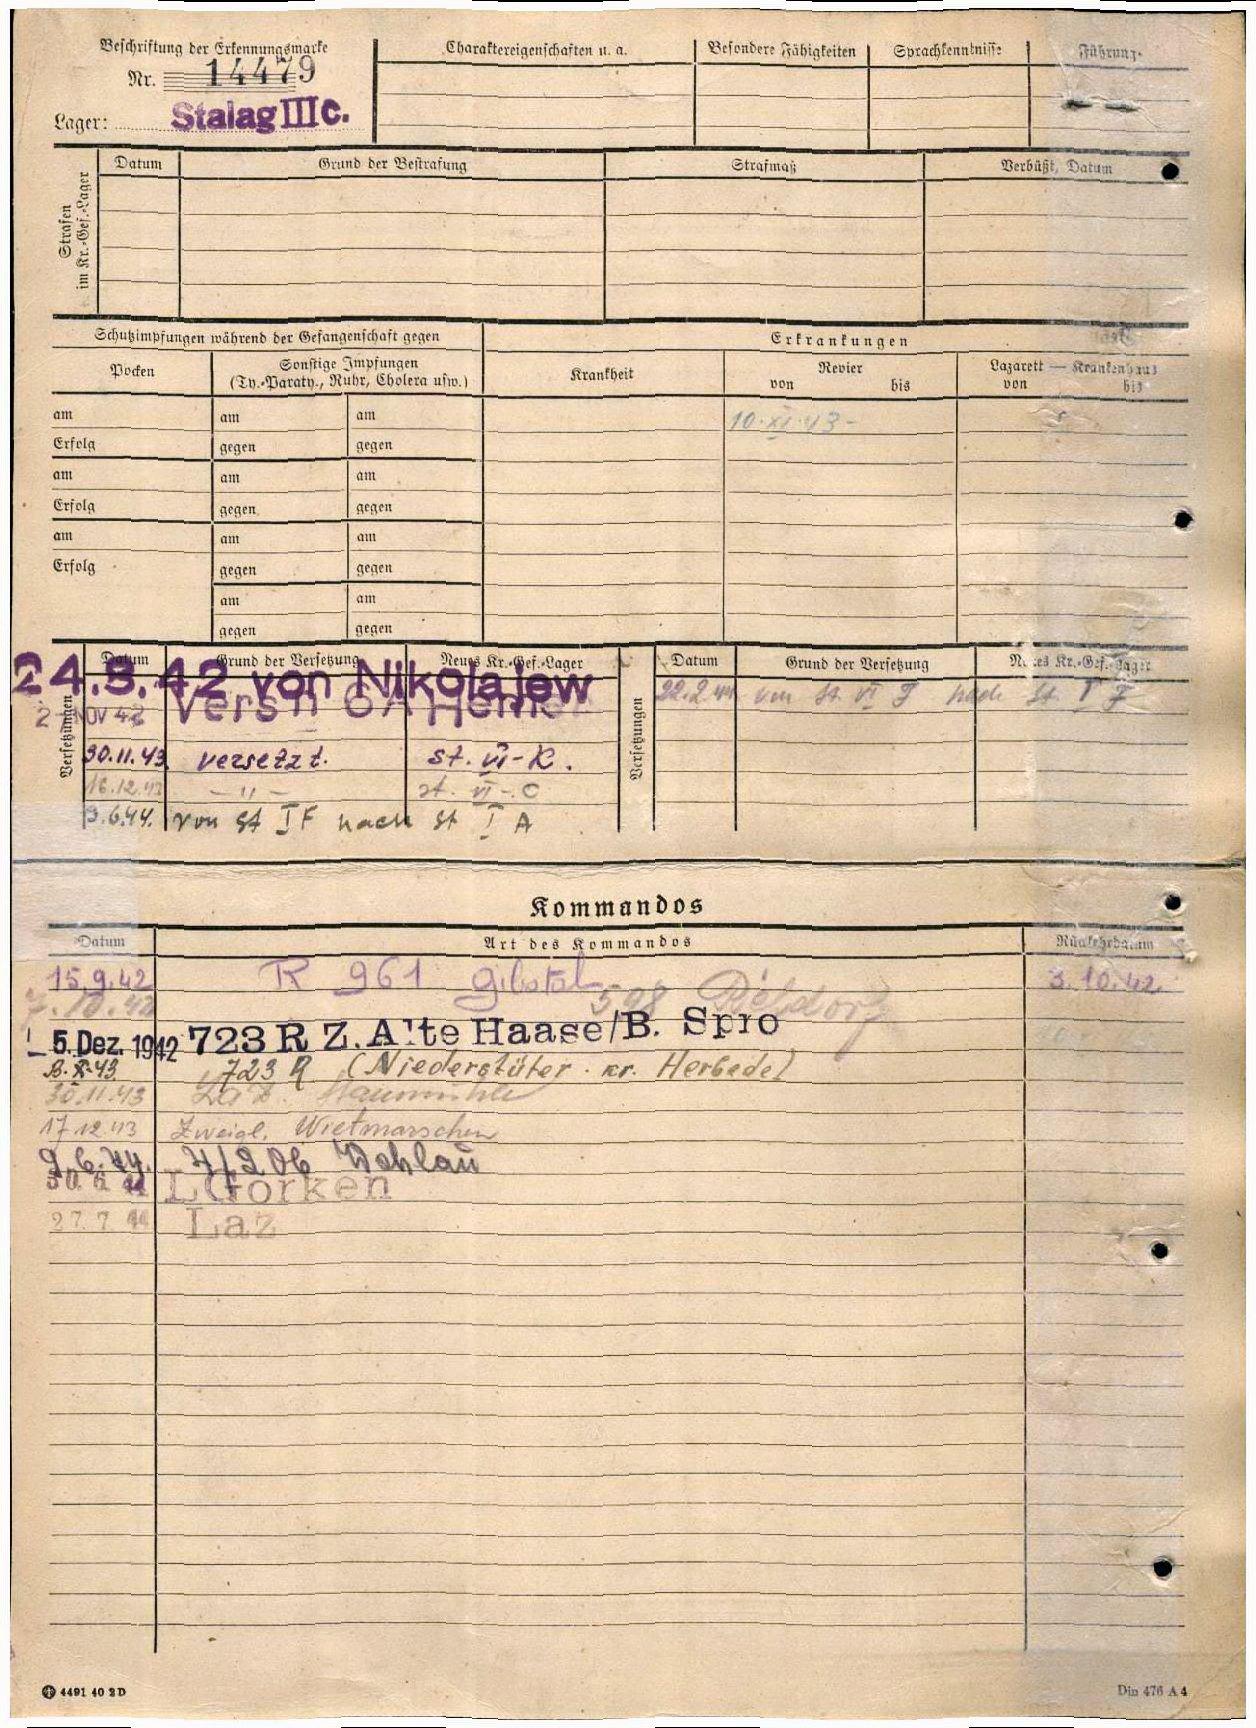 Beschriftung der Erkennungsmarke
Nr. 14479
Lager: Stalag III C.
Charaktereigenschaften u. a.
Besondere Fähigkeiten
Sprachkenntnisse
Führung
Strafen im Kr.-Gef.-Lager
Datum
Grund der Bestrafung
Strafmaß
Verbüßt, Datum
Schutzimpfungen während der Gefangenschaft gegen
Erkrankungen
Pocken
Sonstige Impfungen
(Ty.-Paraty., Ruhr, Cholera usw.)
Krankheit
Revier
von bis
Lazarett — Krankenhaus
von bis
am am am
10.XI.43-
Erfolg gegen gegen
am am am
Erfolg gegen gegen
am am am
Erfolg gegen gegen
am am
gegen gegen
Versetzungen
Datum Grund der Versetzung Neues Kr.-Gef.-Lager
24.8.42 von Nikolajew
2-NOV 42 Vers n 6A Hemer
30.11.43 versetzt. st. VI-K.
16.12.43 — " — st. VI-C
9.6.44. von St I F nach St I A
Versetzungen
Datum Grund der Versetzung Neues Kr.-Gef.-Lager
22.2.44 von St. VI nach St. I F
Kommandos
Datum Art des Kommandos Rückkehrdatum
15.9.42 R 961 3.10.42.
7.10.42 598
5. Dez. 1942 723 R Z. Alte Haase/B. Spro
723 R (Niederstüter. kr. Herbede)
30.11.43 Laz.
17.12.43 Zweigl. Wietmarschen
9.6.44. Wehlau
L Gorken
27.7.44 Laz
4491 40 2 D
Din 476 A 4